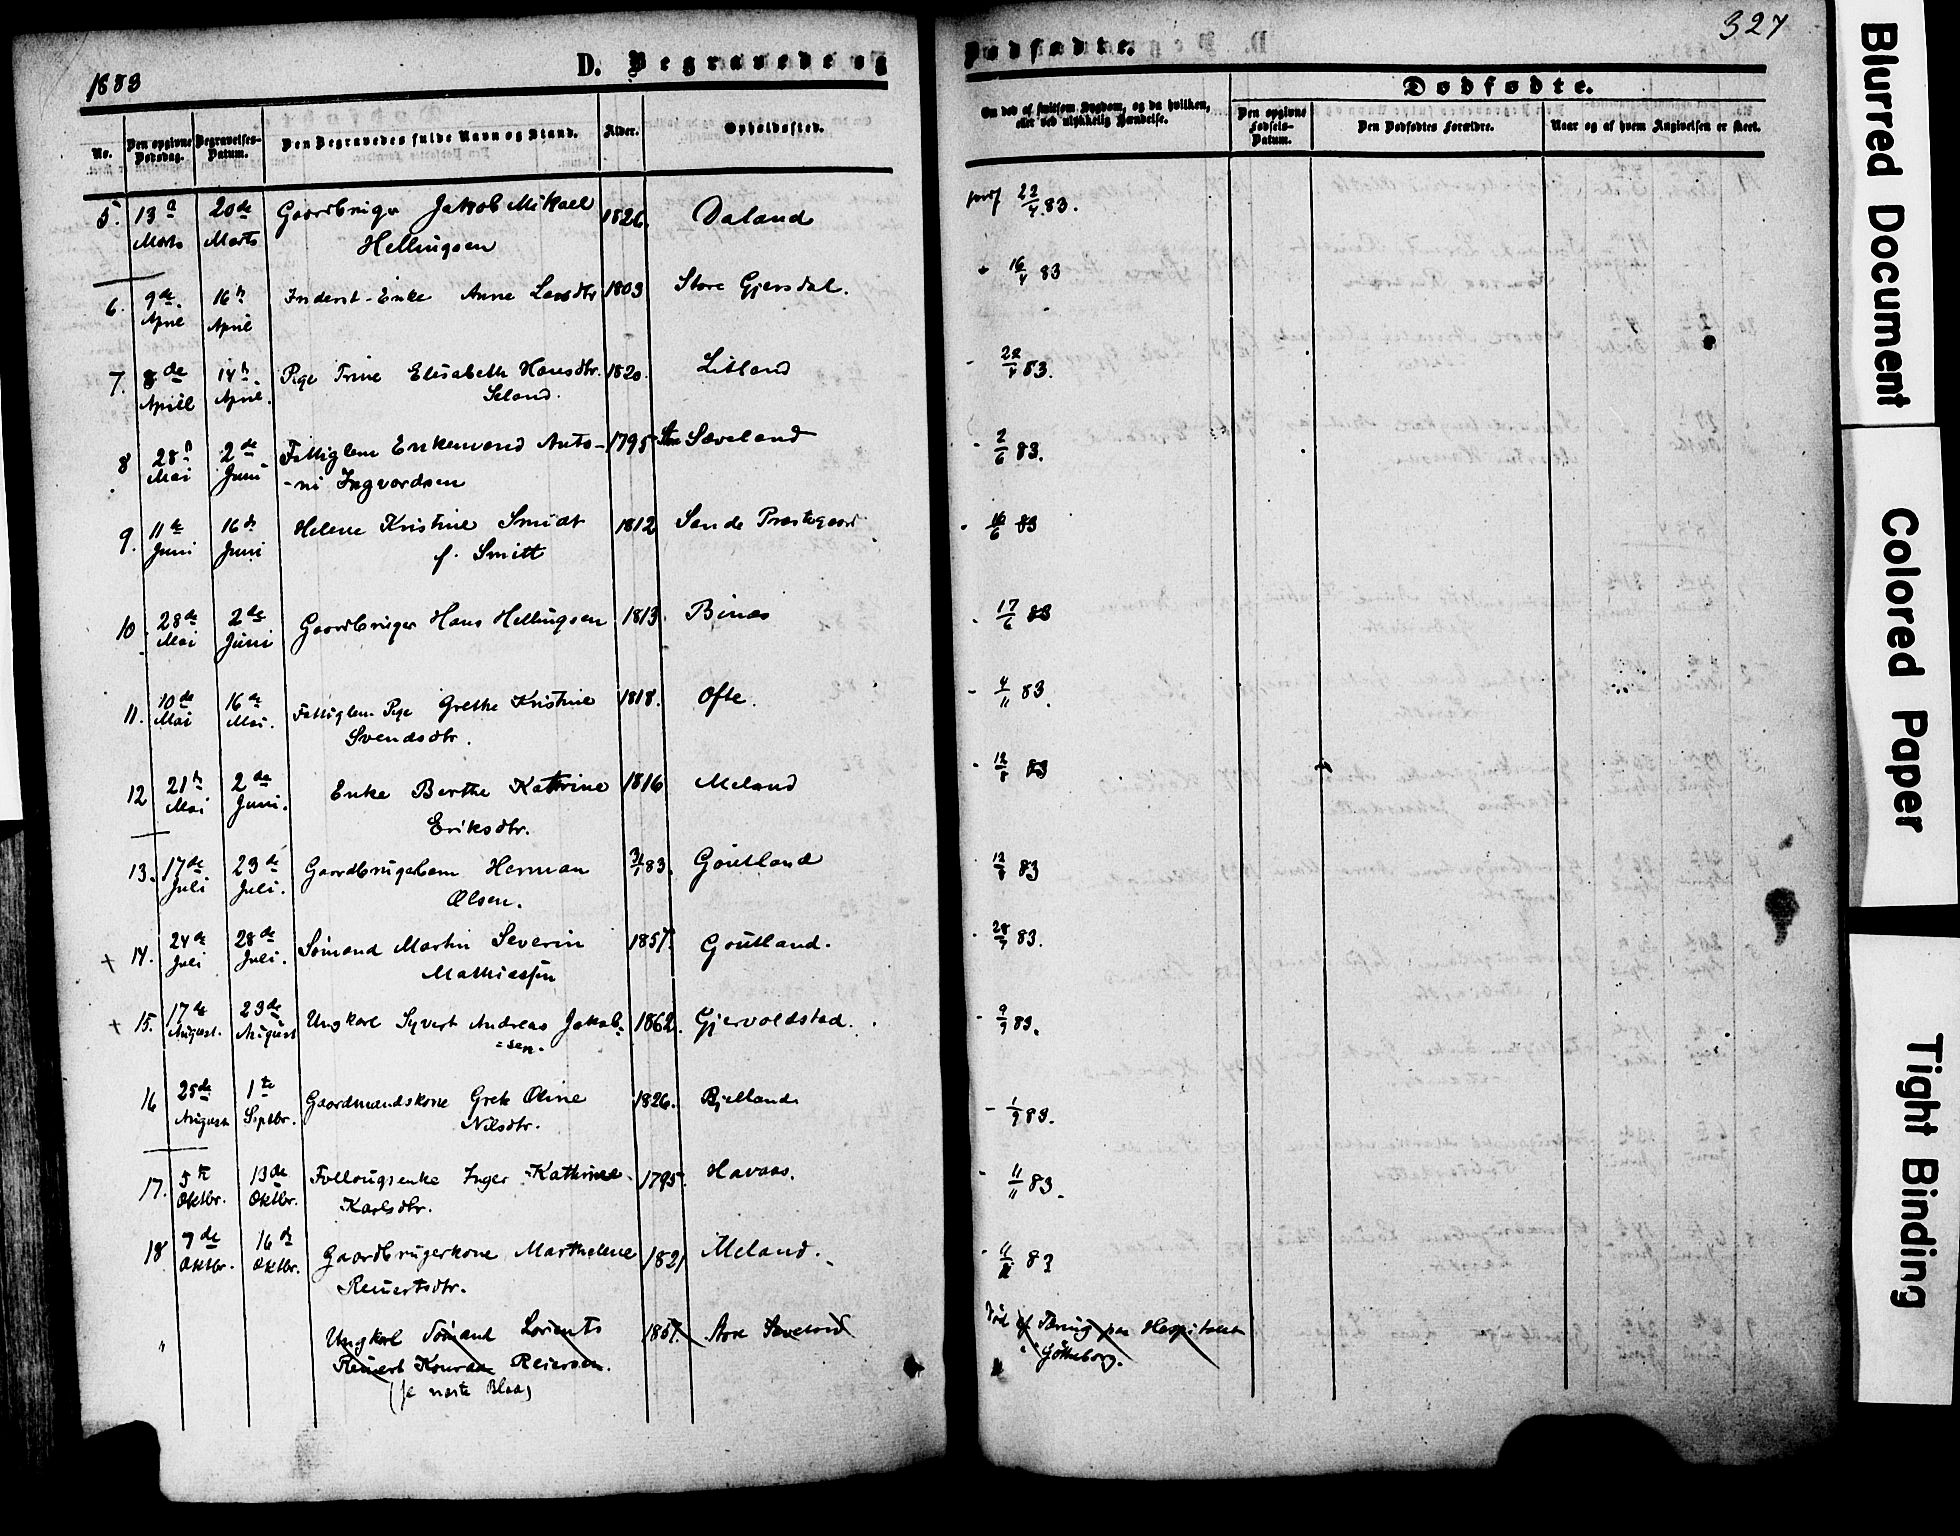 1883
D. Begravede og
No.
Den opgivne Dødsdag.
Begravelses-Datum.
Den Begravedes fulde Navn og Stand.
Alder.
Opholdssted.
5. 13d Marts 20de Marts Gaardbruger Jakob Mikael 1826. Daland
Hellingsen
6. 9de April 16d April Inderst-Enke Anne Larsdtr 1803 Store Gjersdal.
7. 8de April 14d April. Pige Trine Elisabeth Hansdtr. 1820. Litland
Seland.
8 28d Mai 2de Juni Fattiglem Enkemand Anto- 1795 Sæveland
-ni Ingvardsen
9. 11te Juni 16de Juni Helene Kristine Smidt 1812 Sande Præstegaard
f. Smitt
10. 28de Mai 2de Juni Gaardbruger Hans Hellingsen 1813. Binas
11. 10de Mai 16de Mai. Fattiglem Pige Grethe Kristine 1818. Ofte.
Svendsdtr.
12 21d Mai 2de Juni. Enke Berthe Kathrine 1816 Meland
Eriksdtr.
13. 17de Juli 23de Juli. Gaardbrugerbarn Herman 83. Goutland
Olsen.
+ 14. 24de Juli 28de Juli. Sømand Martin Severin 1857. Goutland.
Mathiassen
+ 15. 17de August. 23de August Ungkarl Syvert Andreas Jakob- 1862. Gjervoldstad.
=sen.
16 25de August 1te Septbr. Gaardmandskone Grete Oline 1826. Bjelland
Nilsdtr.
17. 5te Oktbr. 13de Oktbr. Følaugsenke Inger Kathrine 1795. Havaas.
Karlsdtr.
18 7de Oktbr. 16de Oktbr. Gaardbrugerkone Marthelene 1821 Meland.
Reiertsdtr.
" Ungkarl Sømand Lorents 1857. Store Sæveland
Reiert Konrad Reiersen.
(se næste Blad)
327
Dødfødte.
Om død af smitsom Sygdom, og da hvilken,
eller ved ulykkelig Hændelse.
Dødfødte.
Den opgivne Fødsels-Datum.
Den Dødfødtes Forældre.
Naar og af hvem Angivelsen er skeet.
22/4 83.
" 16/4 83
- 22/4 83.
- 2/6 83.
- 16/6 83
- 17/6 83
- 4/11 83.
- 12/8 83
- 12/8 83
- 28/7 83.
- 9/9 83.
- 1/9 83.
- 11/11 83.
- 83
Død af Tæring paa Hospitalet
i Götheborg.
Blurred Document
Colored Paper
Tight Binding